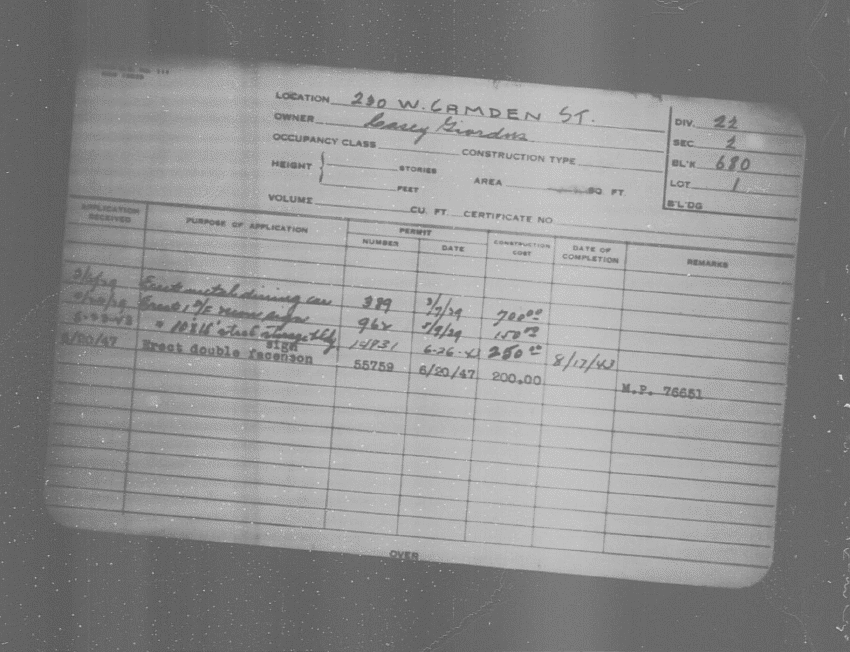 LOCATION 230 W. CAMDEN ST.
OWNER Casey
OCCUPANCY CLASS CONSTRUCTION TYPE
HEIGHT STORIES
FEET AREA SQ FT.
VOLUME CU. FT. CERTIFICATE NO
DIV. 22
SEC 2
BL'K 680
LOT 1
B'L'DG
APPLICATION RECEIVED PURPOSE OF APPLICATION PERMIT NUMBER DATE CONSTRUCTION COST DATE OF COMPLETION REMARKS
Erect metal dining car 389 3/7/29 700.00
Erect 1 D/F neon sign 962 5/9/29 150.00
" 10 X 16' steel storage bldg 14931 6-26-43 250.00 8/12/43
sign
6/20/47 Erect double facenson 55759 6/20/47 200.00 M.P. 76651
OVER